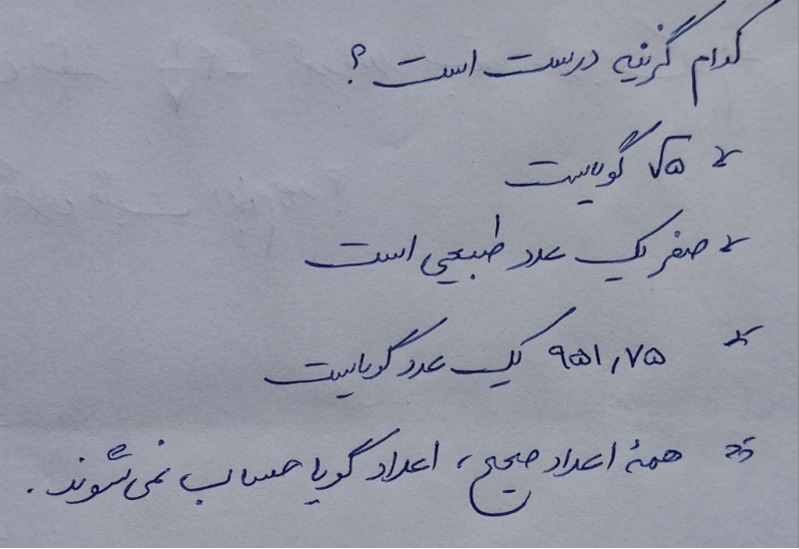 کدام گزینه درست است؟
* √۵ گویاست
* صفر یک عدد طبیعی است
* ۹۵۱٫۷۵ یک عدد گویاست
* همهٔ اعداد صحیح، اعداد گویا حساب نمی‌شوند.